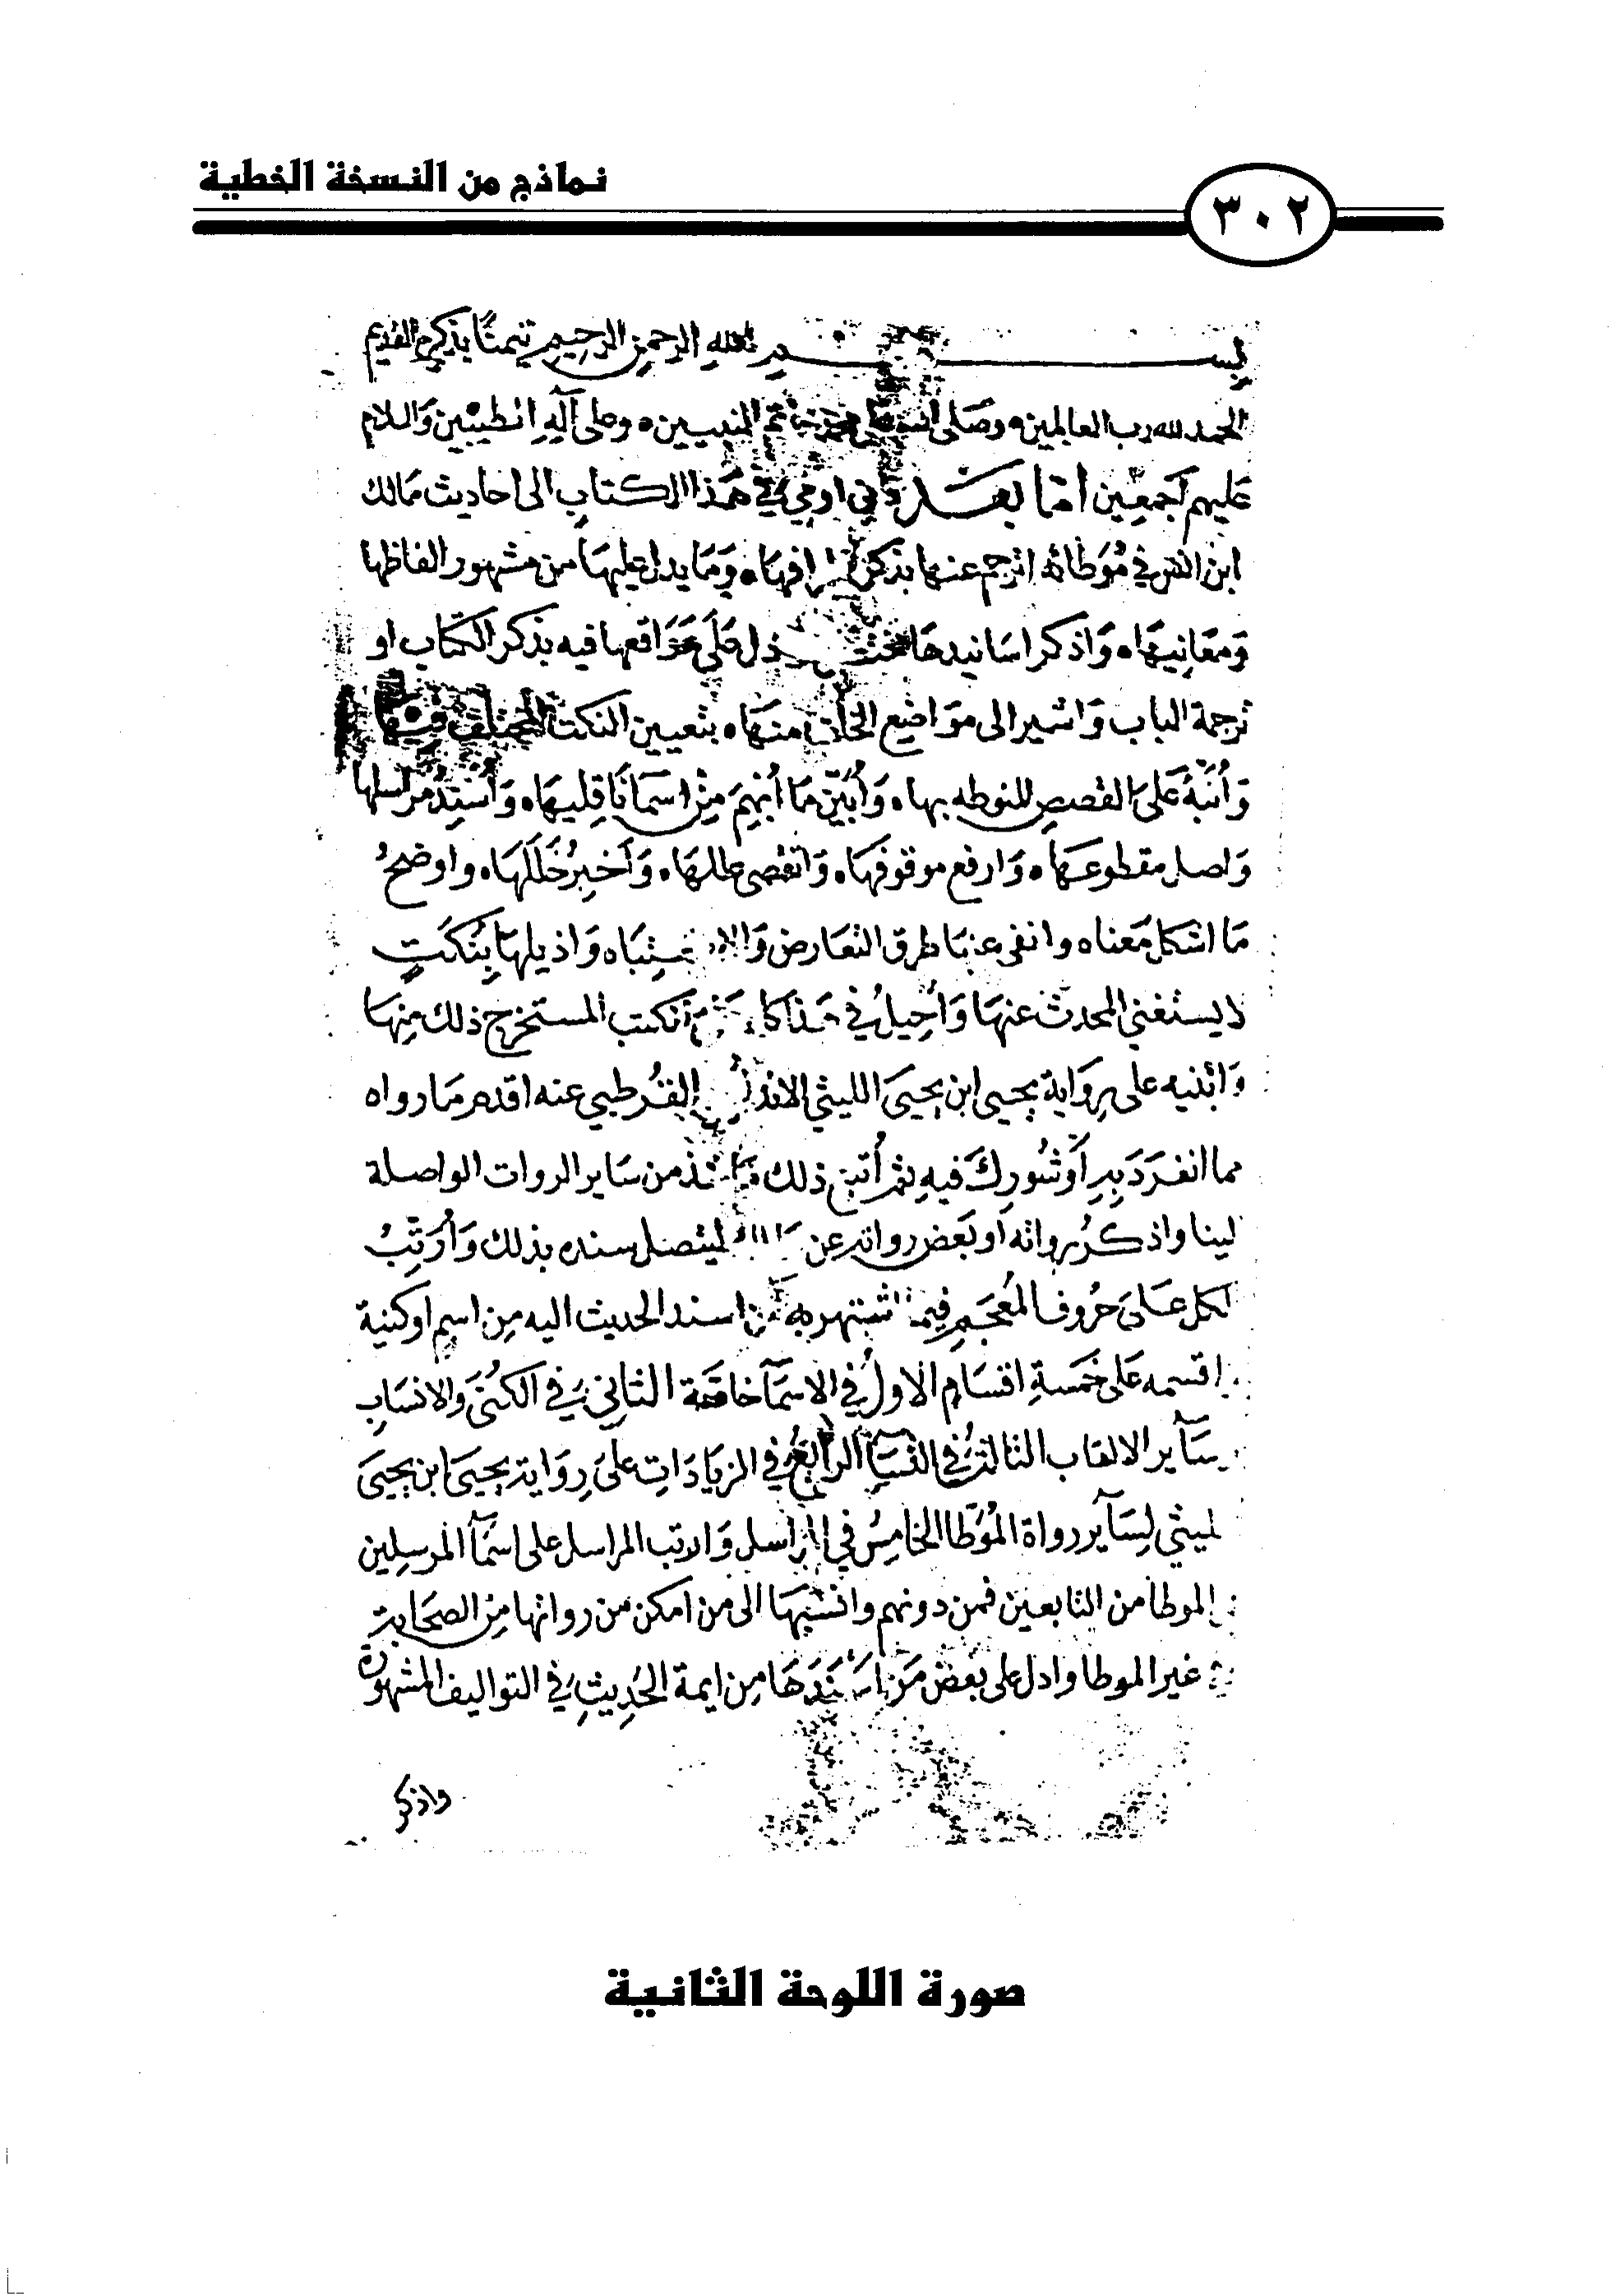 نماذج من النسخة الخطية
٣٠٢
بسم الله الرحمن الرحيم تيمنًا بذكره القديم
الحمد لله رب العالمين وصلى الله على محمد خاتم النبيين وعلى آله الطيبين والسلام
عليهم أجمعين أما بعد فإني اومي في هذا الكتاب الى احاديث مالك
ابن انس في موطائه اترجم عنها بذكر اطرافها وَمَا يدل عليها من مشهور الفاظها
وَمَعَانيهَا وَاذكر اسَانيدهَا دل عَلَى مَوَاقعها فيه بذكر الكتاب او
ترجمة الباب وَاشير الى موَاضِع الخلاف منهَا بتعيين النكت المختلف فيها
وَأُنَبّهُ عَلَى القصص المنوطه بها وَأُبَيّن مَا أُبْهِمَ مِن اسمَا نَاقِليهَا وَأُسْنِدُ مرسلها
وَاصل مقطوعهَا وَارفع موقوفهَا وَاتقصى عللهَا وَأَجْبرُ خَلَلَهَا واوضحُ
مَا اشكل مَعناه وانفي عنهَا طرق التعَارض وَالاشتبَاه وَاذيلهَا بِنُكَتٍ
لا يستغني المحدث عنهَا وَأُحِيلُ في هَذا كله على الكتب المستخرج ذلك مِنهَا
وَابنيه على رِوَاية يحيى ابن يحيَى الليثي الاندلسي القرطبي عنه اقدم مَا رواه
مما انفرَدَ بِهِ أَو شُورِكَ فيهِ ثم أُتبع ذلك مَا شذ من سَاير الروات الواصلة
لينا واذكرُ رواته أو بَعض رواته عن مالك ليتصل سنده بذلك وَأُرَتِّبُ
لكل عَلى حُروف المعجَم فِيمَا اشتهر به من اسند الحديث اليه مِن اسم او كنية
اقسمه على خَمسةِ اقسَام الاولُ في الاسمَآ خاصّة الثاني في الكُنَى وَالانسَاب
سَآير الالقاب الثالث في النسَآ الرابعُ في الزيَادَاتِ عَلَى رِوَاية يحيَى ابن يحيَى
لميثي لِسَآير رواة المُوَطا الخامِسُ في المراسل وَارتب المراسل على اسمَآ المرسِلين
الموطا من التابعين فمن دونهم وانسبهَا الى من امكن من رواتها مِن الصحَابة
غير الموطا وادل على بَعض مَن اسْنَدَهَا مِن ايمة الحَدِيثِ في التواليف المشهورة
واذكر
صورة اللوحة الثانية